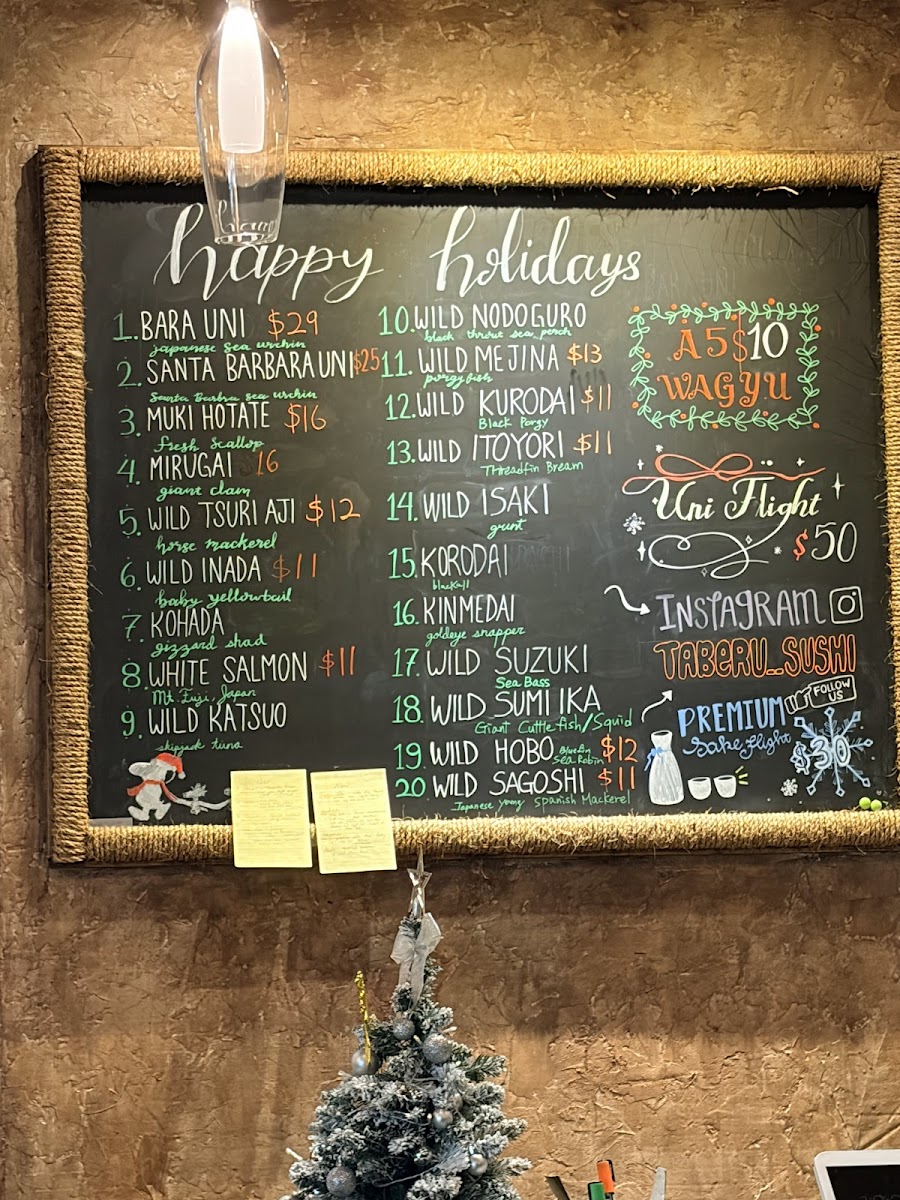 happy holidays
1. BARA UNI $29
japanese sea urchin
2. SANTA BARBARA UNI $25
Santa Barbra sea urchin
3. MUKI HOTATE $16
fresh scallop
4. MIRUGAI 16
giant clam
5. WILD TSURI AJI $12
horse mackerel
6. WILD INADA $11
baby yellowtail
7. KOHADA
gizzard shad
8. WHITE SALMON $11
Mt. Fuji, Japan
9. WILD KATSUO
skipjack tuna
10. WILD NODOGURO
black throut sea perch
11. WILD MEJINA $13
porgyfish
12. WILD KURODAI $11
Black Porgy
13. WILD ITOYORI $11
Threadfin Bream
14. WILD ISAKI
grunt
15. KORODAI
16. KINMEDAI
goldeye snapper
17. WILD SUZUKI
Sea Bass
18. WILD SUMI IKA
Giant Cuttlefish/Squid
19 WILD HOBO Bluefin Sea Robin $12
20 WILD SAGOSHI $11
Japanese young Spanish Mackerel
A5 $10
WAGYU
Uni Flight
$50
INSTAGRAM
TABERU_SUSHI
FOLLOW US
PREMIUM
Sake flight
$30